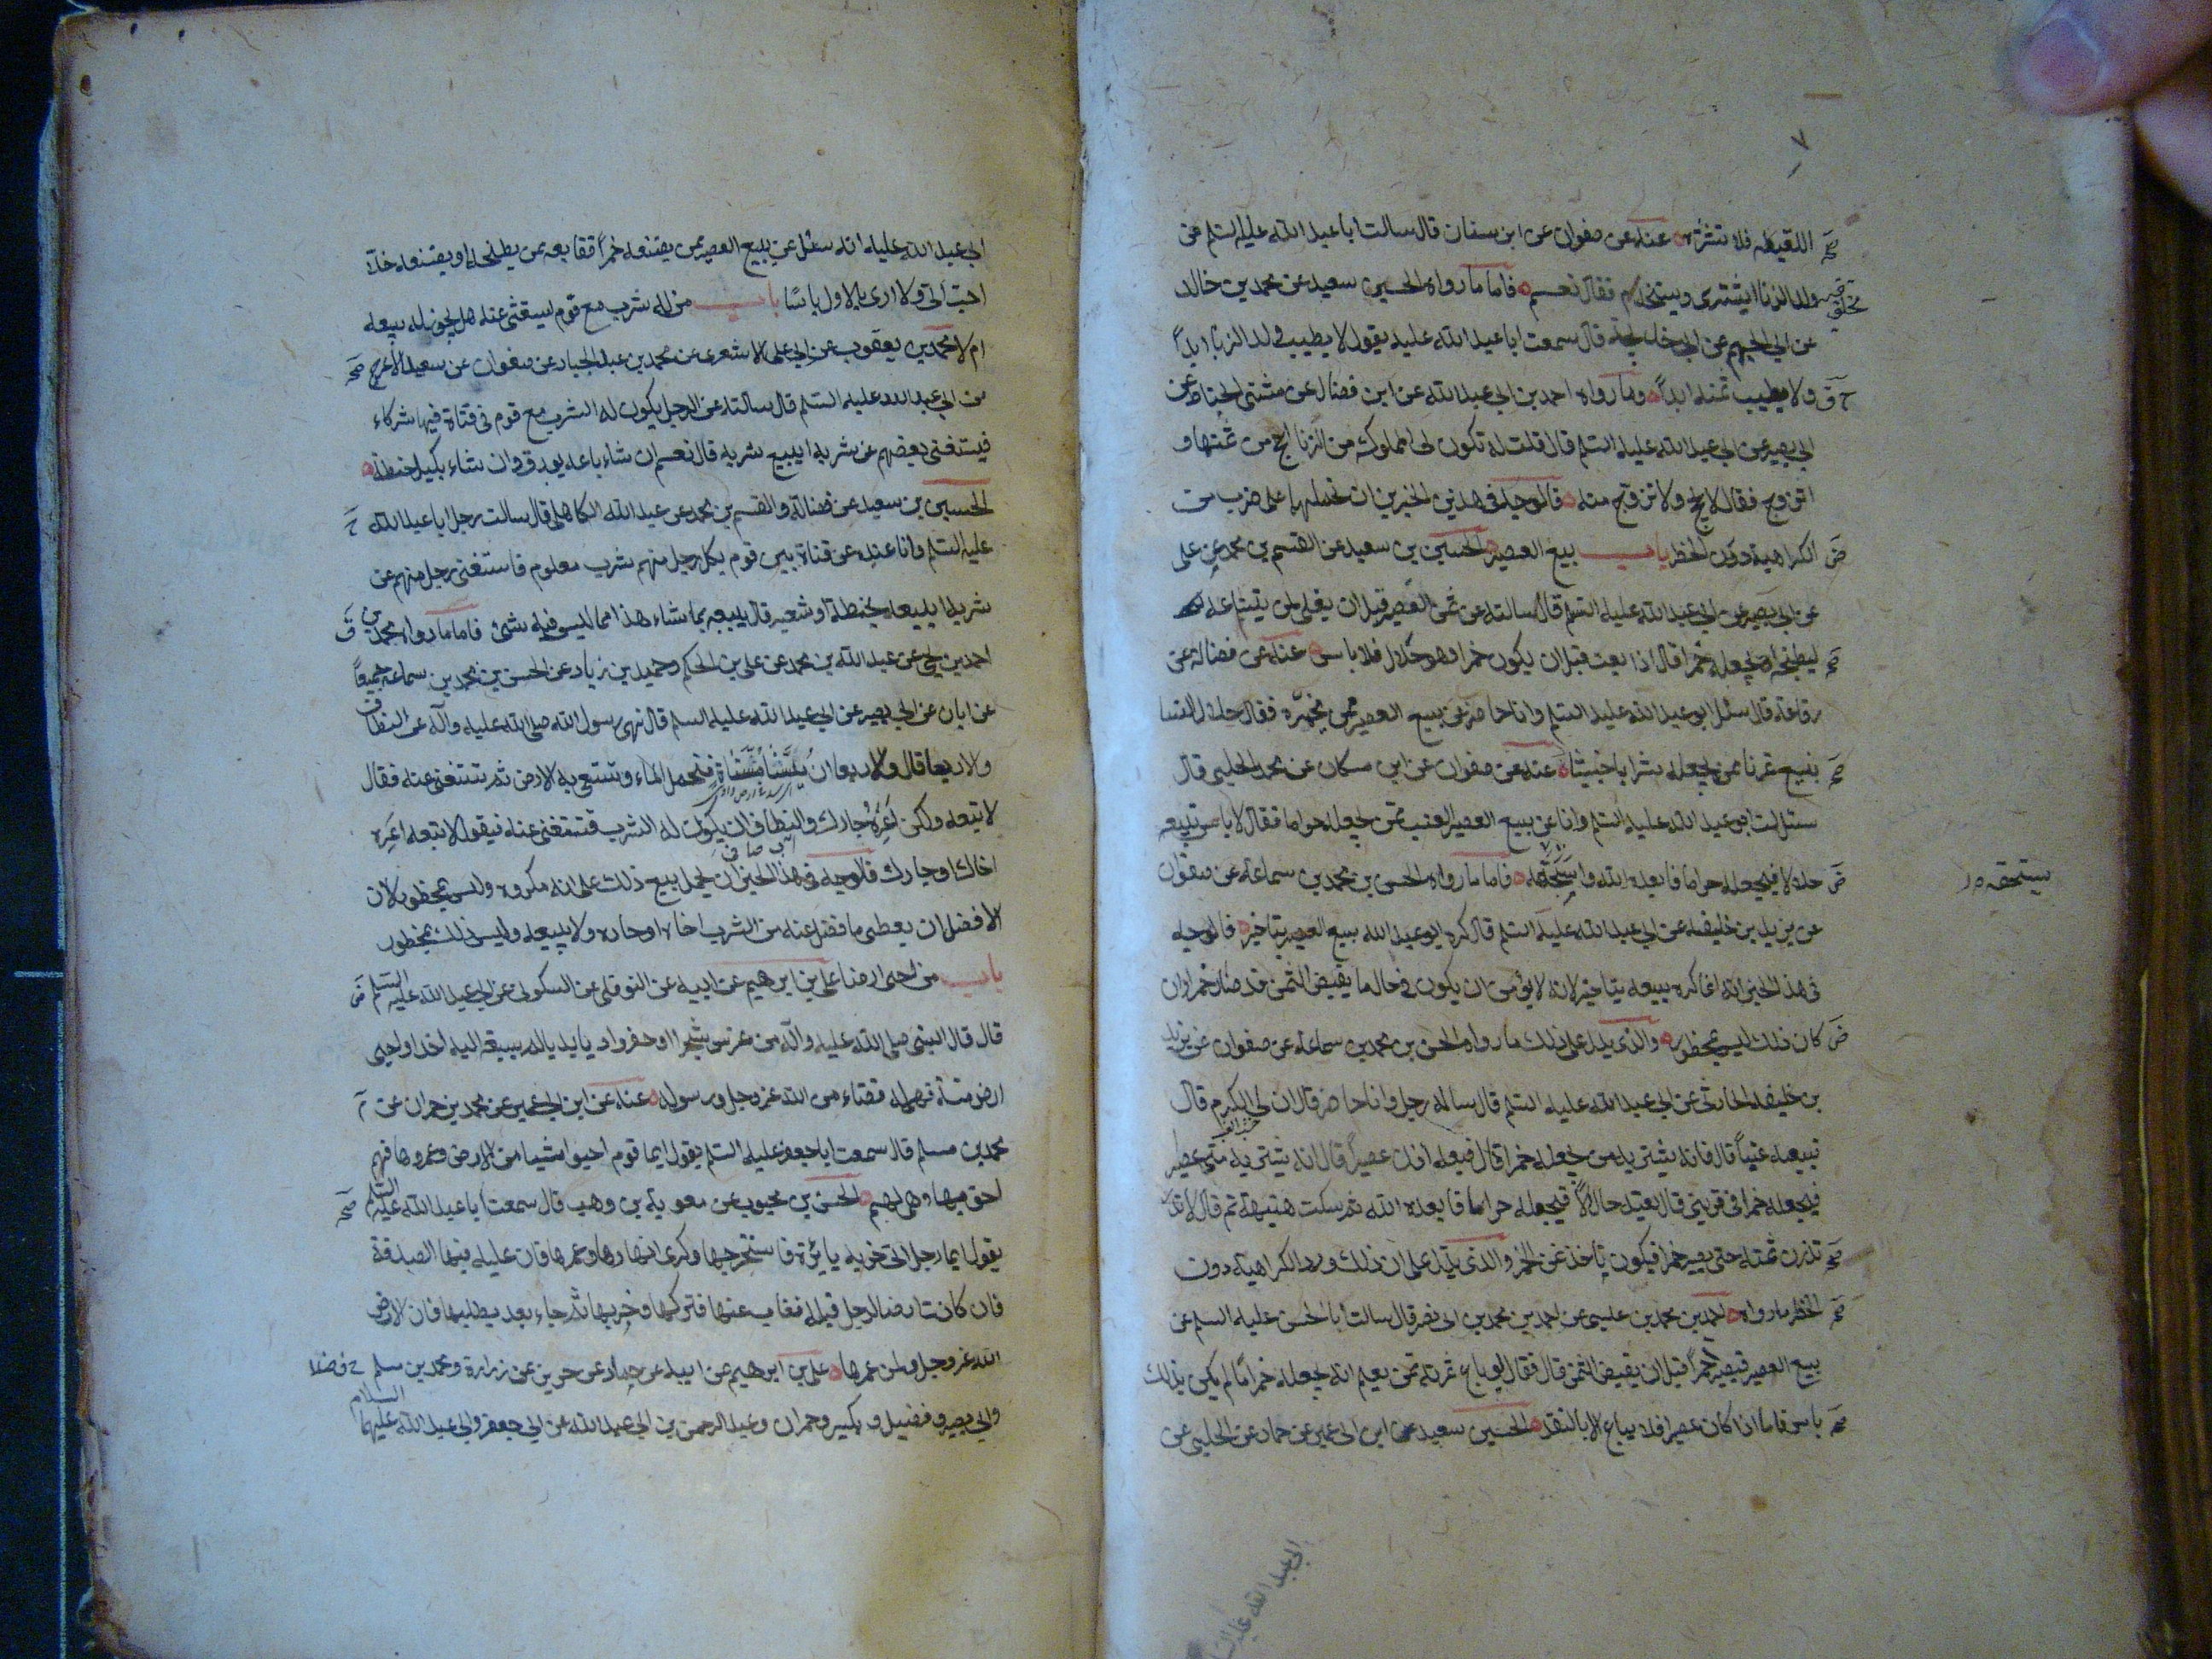 اللقيطه فلا تشتر عنه عن صفوان عن ابن سنان قال سالت ابا عبد الله عليه السلم عن
ولد الزنا ايشترى ويستخدم فقال نعم فاما ما رواه الحسين سعيد عن محمد بن خالد
عن ابي الجهم عن ابي خديجة قال سمعت ابا عبد الله عليه يقول لا يطيب ولد الزنا ابداً
ولا يطيب ثمنه ابداً وما رواه احمد بن ابي عبد الله عن ابن فضال عن مثنى الحناط عن
ابي بصير عن ابي عبد الله عليه السلم قال قلت له تكون لى المملوكة من الزنا احج من ثمنها و
اتزوج فقال لا تحج ولا تتزوج منه فالوجه فى هذين الخبرين ان نحملهما على ضرب من
الكراهية دون الحظر باب بيع العصير الحسين بن سعيد عن القسم بن محمد عن على
عن ابي بصير عن ابي عبد الله عليه السلم قال سالته عن ثمن العصير قبل ان يغلى لمن يبتاعه
ليطبخه او يجعله خمرا قال اذا بعت قبل ان يكون خمرا وهو حلال فلا باس عنه عن فضالة عن
رفاعة قال سئل ابو عبد الله عليه السلم وانا حاضر عن بيع العصير ممن يخمره فقال حلال السنا
نبيع تمرنا ممن يجعله شرابا خبيثا عنه عن صفوان عن ابن مسكان عن محمد الحلبى قال
سئلت ابو عبد الله عليه السلم وانا عن بيع العصير العنب ممن يجعله حراما فقال لا باس تبيعه
حلالا فيجعله حراما فابعده الله واسحقه فاما ما رواه الحسن بن محمد بن سماعة عن صفوان
يستحقه
عن يزيد بن خليفه عن ابي عبد الله عليه السلم قال كره ابو عبد الله بيع العصير بتاخير فالوجه
فى هذا الخبر انه انما كره بيعه بتاخير لانه لا يؤمن ان يكون فى حال ما يقبض الثمن قد صار خمرا وان
كان ذلك ليس بمحظور والذى يدل على ذلك ما رواه الحسن بن محمد بن سماعة عن صفوان عن يزيد
بن خليفه الحارثى عن ابي عبد الله عليه السلم قال ساله رجل وانا حاضر قال ان لى الكرم قال
تبيعه عنباً قال فانه يشتريه من يجعله خمرا قال فبعه اذن عصيراً قال انه يشتريه منى عصير
فيجعله خمرا فى قريتى قال بعته حلالاً فيجعله حراما فابعده الله ثم سكت هنيهة ثم قال لا
تذرن ثمنه حتى يصير خمرا فيكون تاخذ ثمن الخمر والذى يدل على ان ذلك ورد الكراهية دون
الحظر ما رواه احمد بن محمد بن عليسى عن احمد بن محمد بن ابى نصر قال سالت ابا الحسن عليه السلم عن
بيع العصير فيصير خمراً قبل ان يقبض الثمن قال فقال لو باع ثمرته ممن يعلم انه يجعله خمراً لم يكن بذلك
باس فاما اذا كان عصيرا فلا يباع الا بالنقد الحسين سعيد عن ابن ابى عمير عن حماد عن الحلبى عن
ابي عبد الله عليه
ابي عبد الله عليه انه سئل عن بيع العصير ممن يصنعه خمراً فقا بعه ممن يطبخه او يصنعه خلاً
احب الى ولا ارى بالاول باسا باب من له شرب مع قوم يستغنى عنه هل يجوز له بيعه
ام لا محمد بن يعقوب عن ابي على الاشعرى عن محمد بن عبد الجبار عن صفوان عن سعيد الاعرج
عن ابي عبد الله عليه السلم قال سالته عن الرجل يكون له الشرب مع قوم فى قناة فيها شركاء
فيستغنى بعضهم عن شربه ايبيع شربه قال نعم ان شاء باعه بورق وان شاء بكيل حنطة
الحسين بن سعيد عن فضالة والقسم بن محمد عن عبد الله الكاهلى قال سالت رجل ابا عبد الله
عليه السلم وانا عنده عن قناة بين قوم لكل رجل منهم شرب معلوم فاستغنى رجل منهم عن
شربه ايبيعه بحنطة او شعير قال يبيعه بما شاء هذا مما ليس فيه شئ فاما ما رواه محمد بن
احمد بن يحيى عن عبد الله بن محمد عن على بن الحكم وحميد بن زياد عن الحسن بن محمد بن سماعه جميعاً
عن ابان عن ابي بصير عن ابي عبد الله عليه السلم قال نهى رسول الله صلى الله عليه واله عن النطاف
والاربعا قال والاربعا ان يسنا مسناة فتحمل الماء وتستقى به الارض ثم تستغنى عنه فقال
لا تبعه ولكن اعره جارك والنطاف ان يكون له الشرب فتستغنى عنه فيقول لا تبعه اعره
اخاك او جارك فالوجه فى هذا الخبر ان نحمل بيع ذلك على انه مكروه وليس بمحظور لان
الافضل ان يعطى ما فضل عنه من الشرب اخاه او جاره ولا يبيعه وليس ذلك بمحظور
باب من احيى ارضا على بن ابرهيم عن ابيه عن النوفلى عن السكونى عن ابي عبد الله عليه السلم
قال قال النبى صلى الله عليه واله من غرس شجرا او حفر واديا بديا لم يسبقه اليه احد او احيى
ارض ميتة فهى له قضاء من الله عز وجل ورسوله عنه عن ابن ابي عمير عن محمد بن حمران عن
محمد بن مسلم قال سمعت ابا جعفر عليه السلم يقول ايما قوم احيوا شيئا من الارض وعمروها فهم
احق بها وهى لهم الحسن بن محبوب عن معوية بن وهب قال سمعت ابا عبد الله عليه السلم
يقول ايما رجل اتى خربه بائرة فاستخرجها وكرى انهارها وعمرها فان عليه فيها الصدقة
فان كانت ارضا لرجل قبله فغاب عنها فتركها وخربها ثم جاء بعد يطلبها فان الارض
الله عز وجل ولمن عمرها على بن ابرهيم عن ابيه عن حماد عن حريز عن زرارة ومحمد بن مسلم
وابي بصير وفضيل وبكير وحمران وعبد الرحمن بن ابي عبد الله عن ابي جعفر وابي عبد الله عليهما السلام